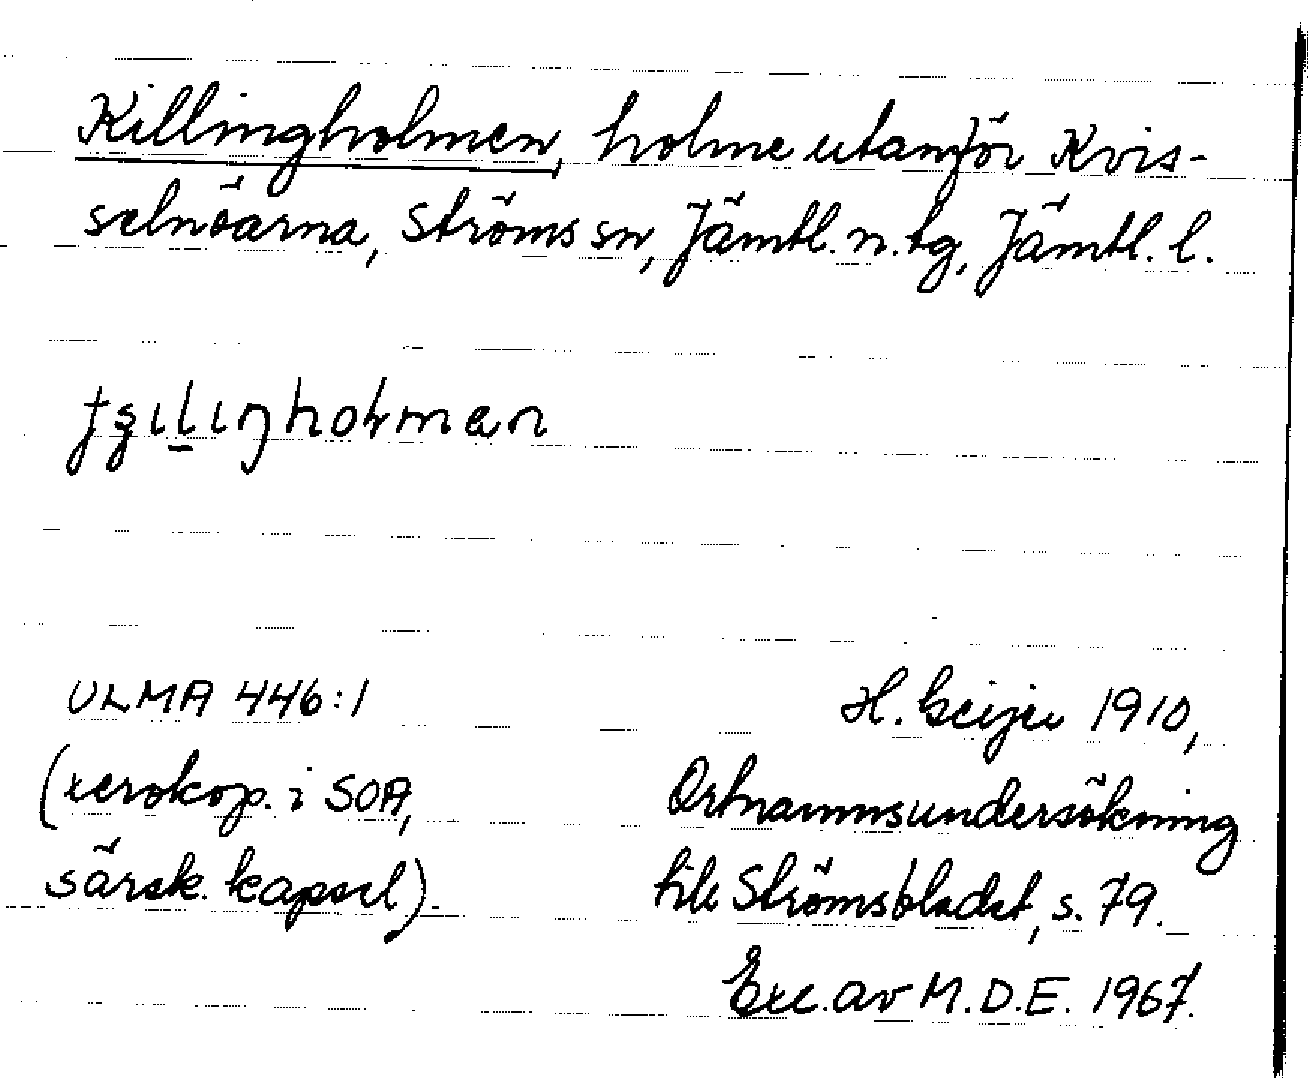 Killingholmen, holme utanför Kvis-
selnöarna, Ströms sn, Jämtl. n. tg, Jämtl. l.
ULMA 446:1
H. Geijer 1910,
(xerokop. i SOA,
Ortnamnsundersökning
särsk. kapsel).
till Strömsbladet, s. 79.
Exc. av M.D.E. 1967.